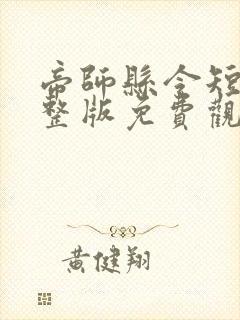 帝師縣令短
整版免費觀
黃健翔